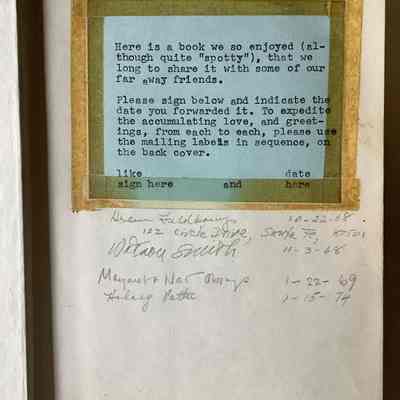 Here is a book we so enjoyed (al-
though quite "spotty"), that we
long to share it with some of our
far away friends.
Please sign below and indicate the
date you forwarded it. To expedite
the accumulating love, and greet-
ings, from each to each, please use
the mailing labels in sequence, on
the back cover.
like date
sign here and here
10-22-68.
102 Circle Drive, Santa Fe, 87501
Watson Smith 11-3-68
Margaret & Nat 1-22-69
1-15-74